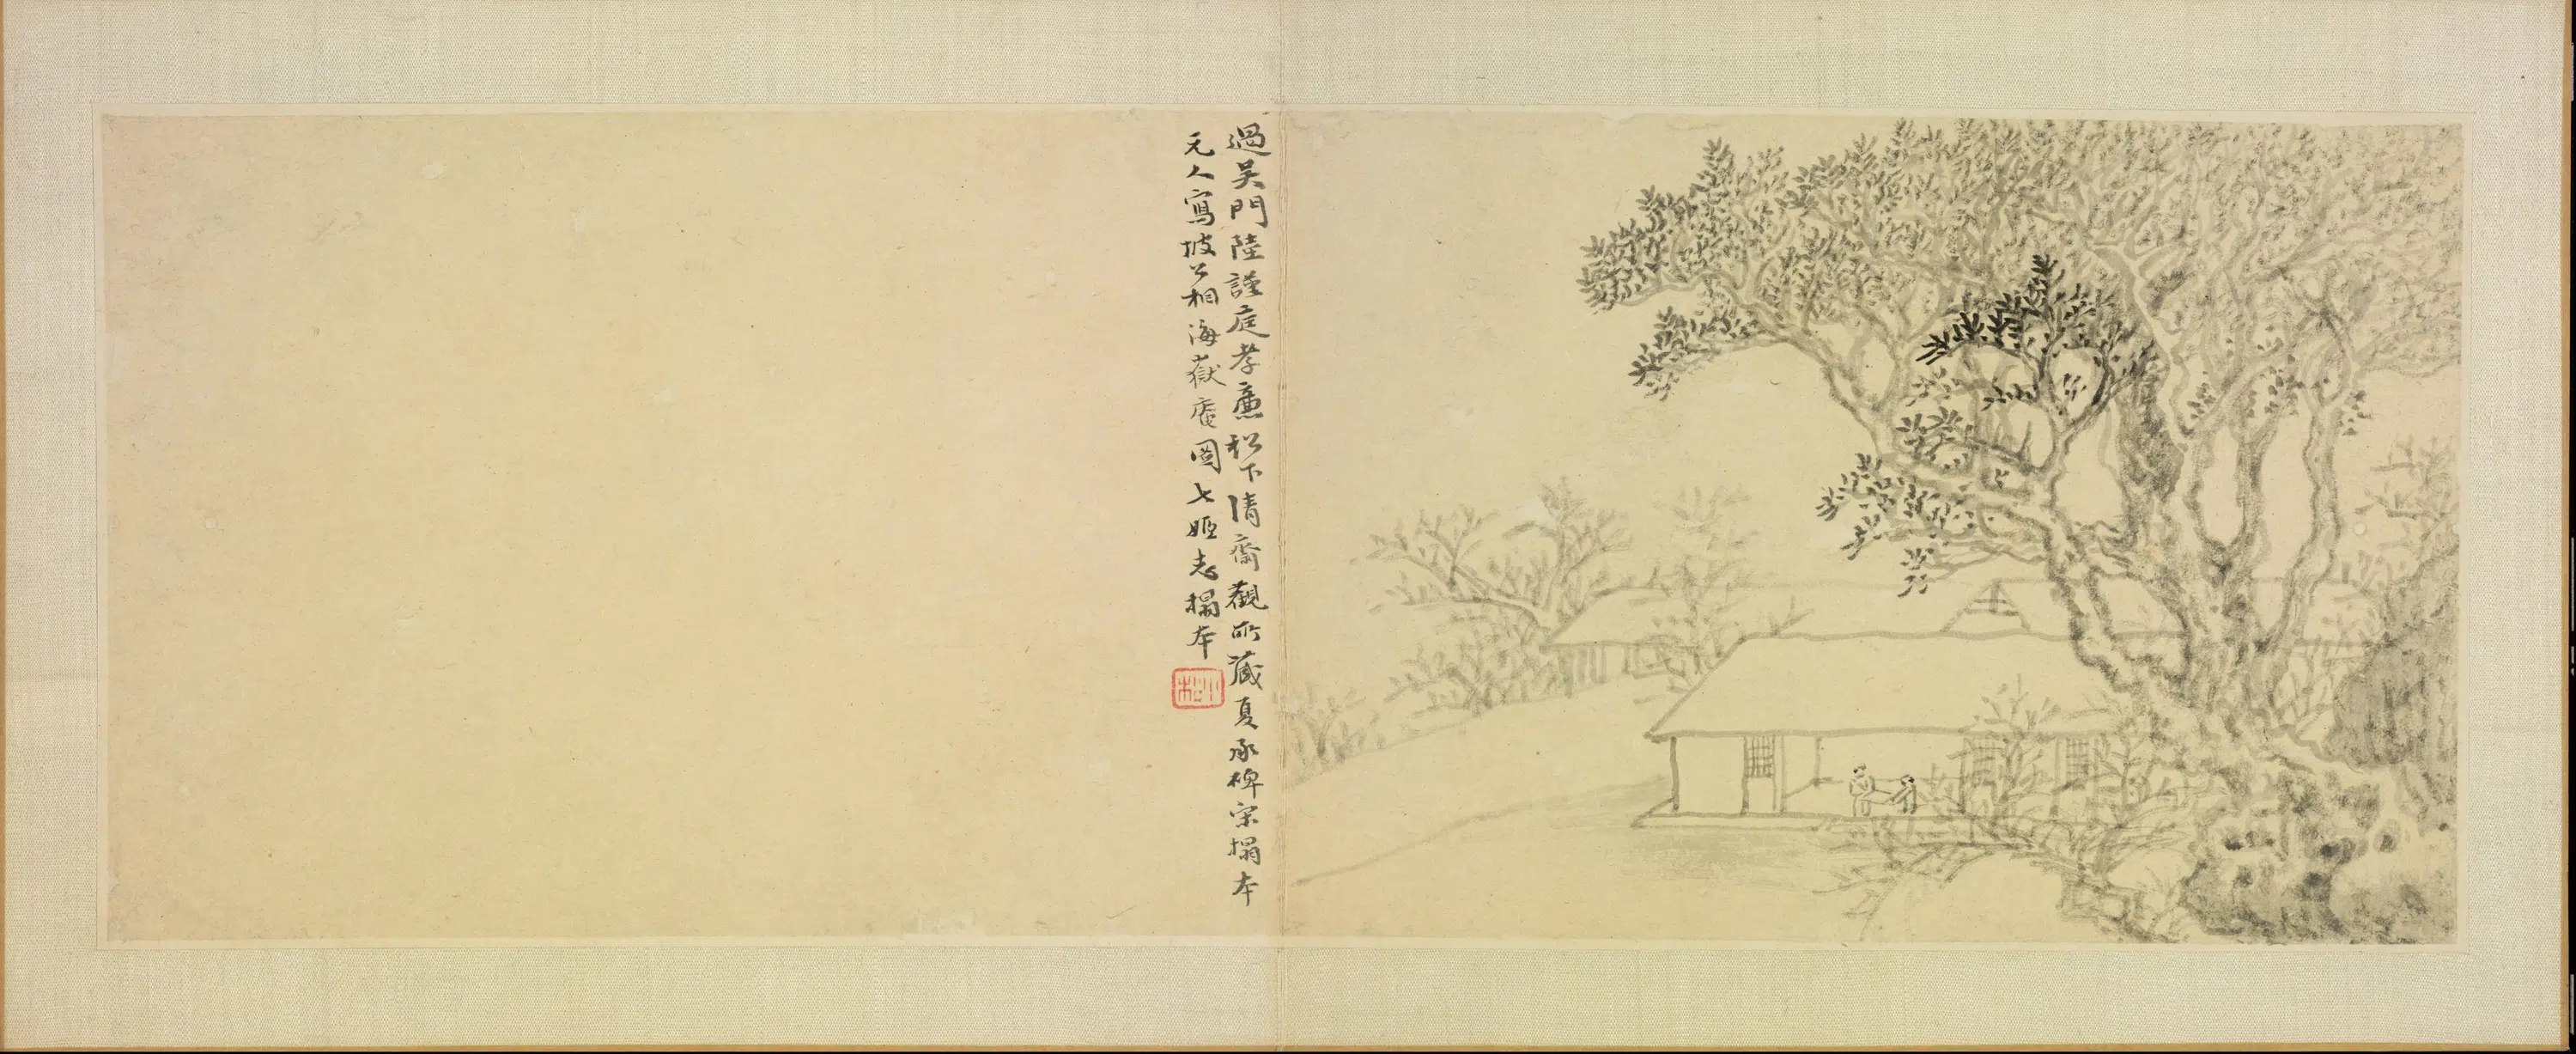 過吳門陸謹庭孝廉松下清齋觀所藏夏承碑宋搨本
元人寫坡公相海嶽庵圖七姬志搨本
小松